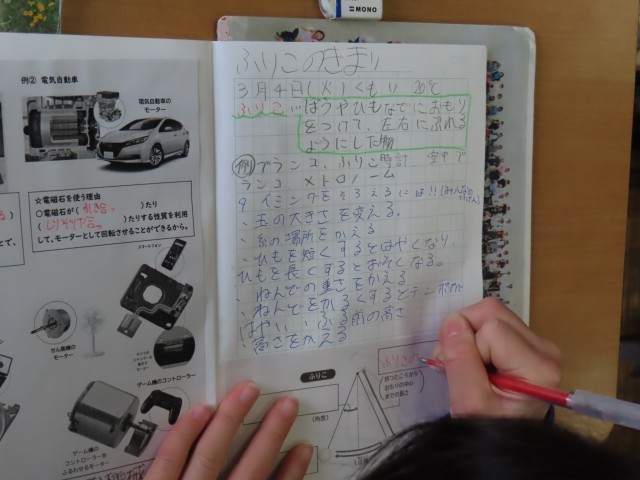 MONO
例② 電気自動車
電気自動車の
モーター
☆電磁石を使う理由
○電磁石が( 引き合っ )たり
( しりぞけた )たりする性質を利用
して、モーターとして回転させることができるから。
スマートフォン
せん風機の
モーター
ゲーム機のコントローラー
ゲーム機の
コントローラーを
ふるわせるモーター
ふりこのきまり
3月4日(火)くもり 20℃
ふりこ…ぼうやひもなどにおもり
をつけて、左右にふれる
ようにした物
例 ブランコ、ふりこ時計 空中ブ
ランコ メトロノーム
タイミングをそろえるには!!
・玉の大きさを変える。
・糸の場所をかえる
・ひもを短くするとはやくなり、
ひもを長くするとおそくなる。
・ねんどの重さをかえる
・ねんどをかるくするとテンポが
はやい ・ふる前の高さ
・高さをかえる
ふりこ